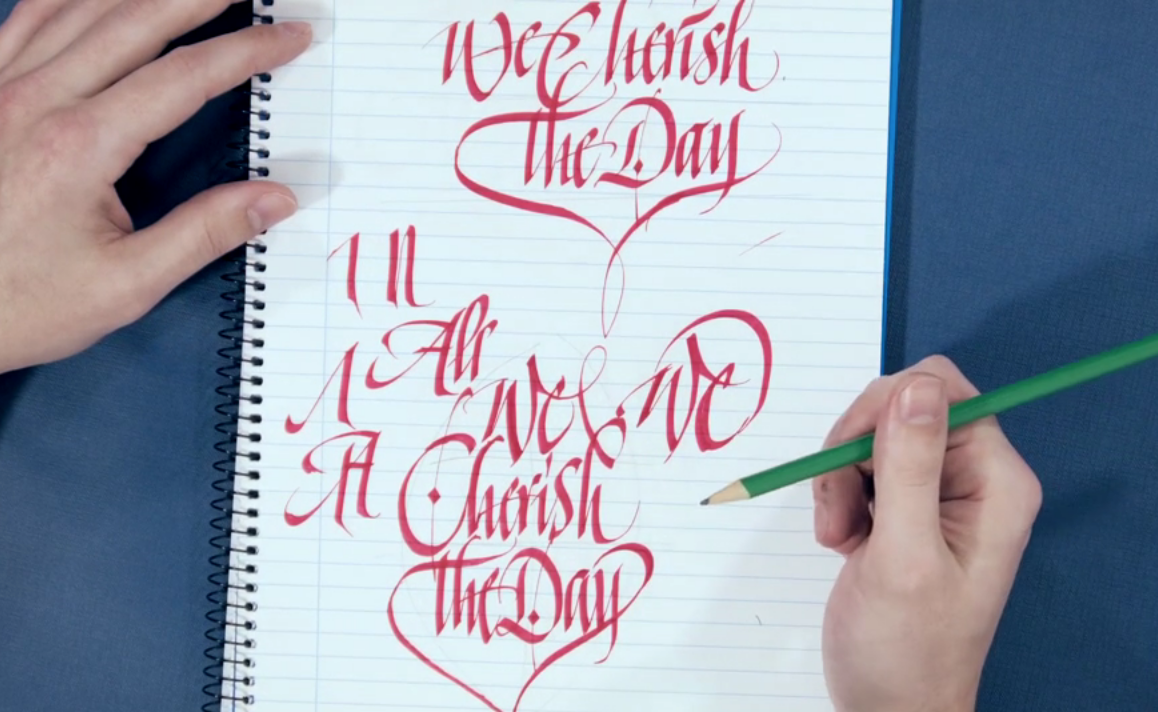 We Cherish
the Day
We We
Cherish
the Day